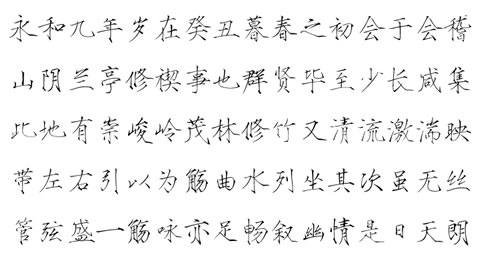 永和九年岁在癸丑暮春之初会于会稽
山阴兰亭修禊事也群贤毕至少长咸集
此地有崇峻岭茂林修竹又清流激湍映
带左右引以为觞曲水列坐其次虽无丝
管弦盛一觞咏亦足畅叙幽情是日天朗